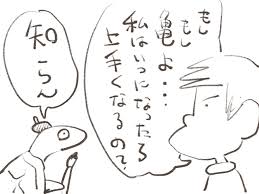 もしもし
亀よ・・・
私はいつになったら
上手くなるの?
知らん